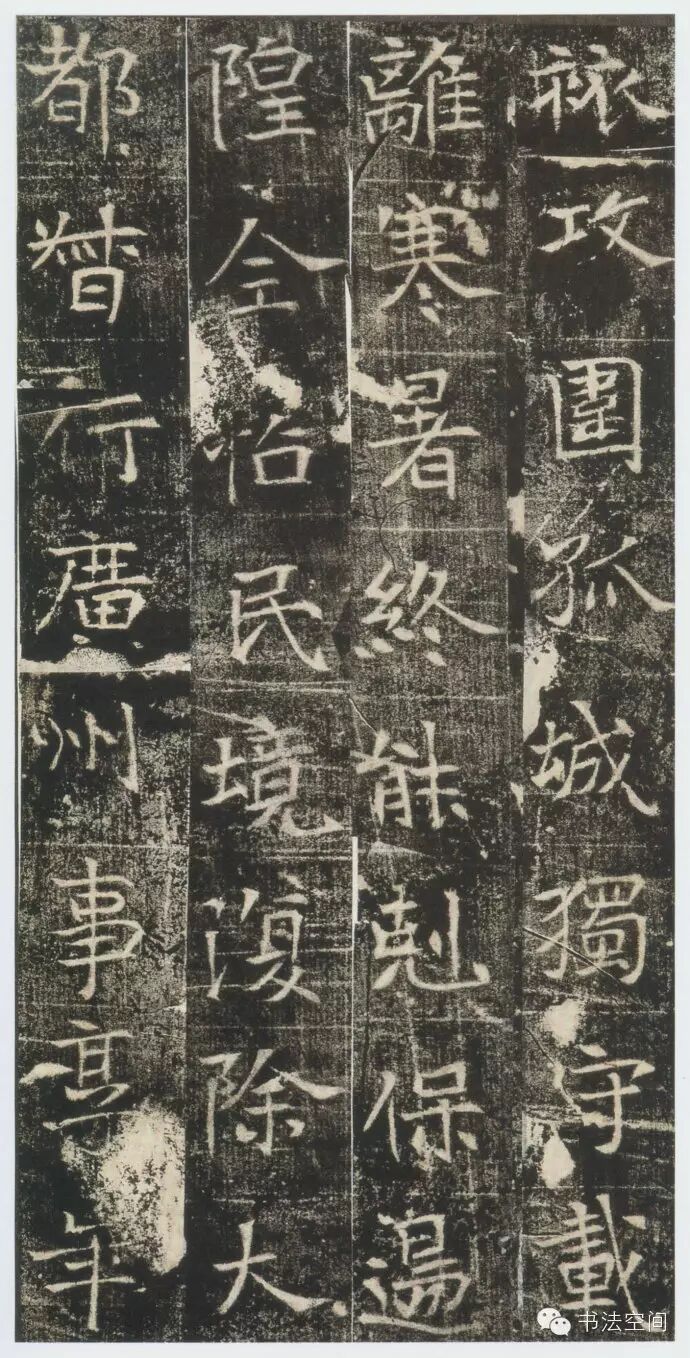 旅攻圍孤城獨守載
離寒暑終能剋保邊
隍全怡民境復除大
都督行廣州事享年
书法空间